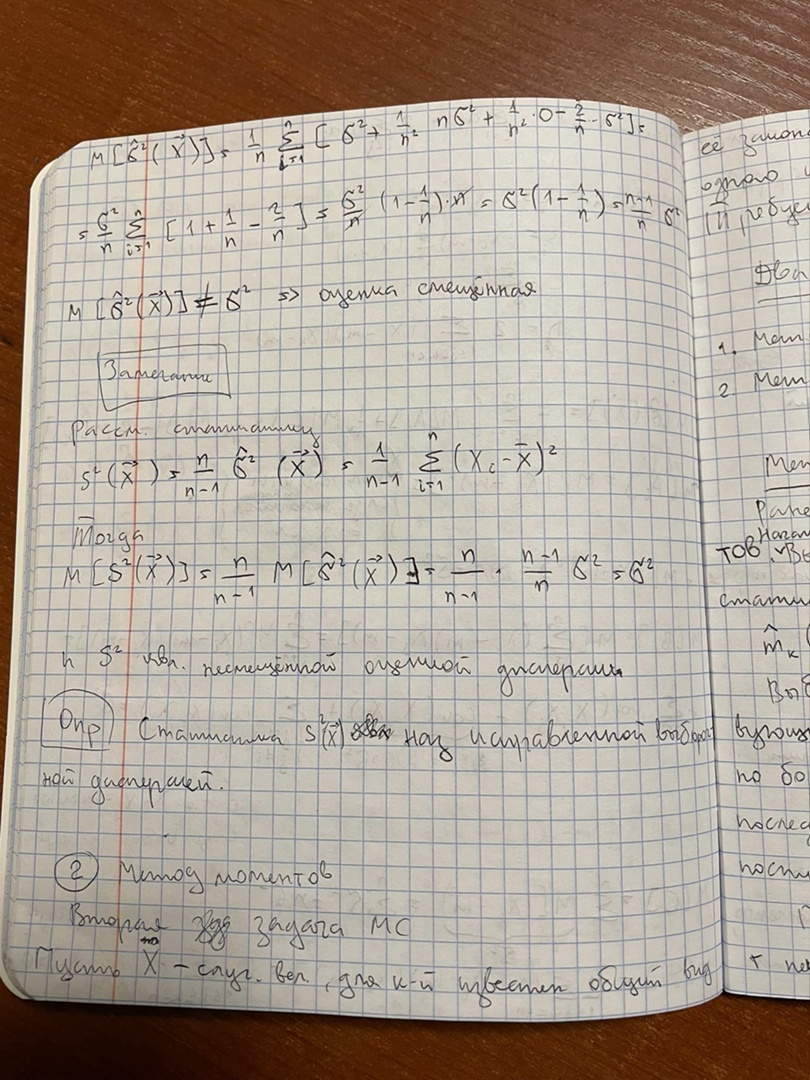 M[σ̂²(X⃗)] = 1/n Σ_{i=1}^{n} [σ² + 1/n² nσ² + 1/n²·0 − 2/n·σ²] =
= σ²/n Σ_{i=1}^{n} [1 + 1/n − 2/n] = σ²/n (1 − 1/n)·n = σ²(1 − 1/n) = n−1/n σ²
M[σ̂²(X⃗)] ≠ σ² => оценка смещённая
Замечание
Рассм. статистику
S²(X⃗) = n/n−1 σ̂²(X⃗) = 1/n−1 Σ_{i=1}^{n} (X_i − X̄)²
Тогда
M[S²(X⃗)] = n/n−1 M[σ̂²(X⃗)] = n/n−1 · n−1/n σ² = σ²
и S² явл. несмещённой оценкой дисперсии
Опр Статистика S²(X⃗) наз исправленной выбороч
ной дисперсией.
2 Метод моментов
Вторая задача МС
Пусть X – случ. вел., для к-й известен общий вид
её закона
одного
Два
1. Мет
2. Мет
Мет
Начал
тов. Вы
стати
m̂_k (
Выб
вующ
по бо
послед